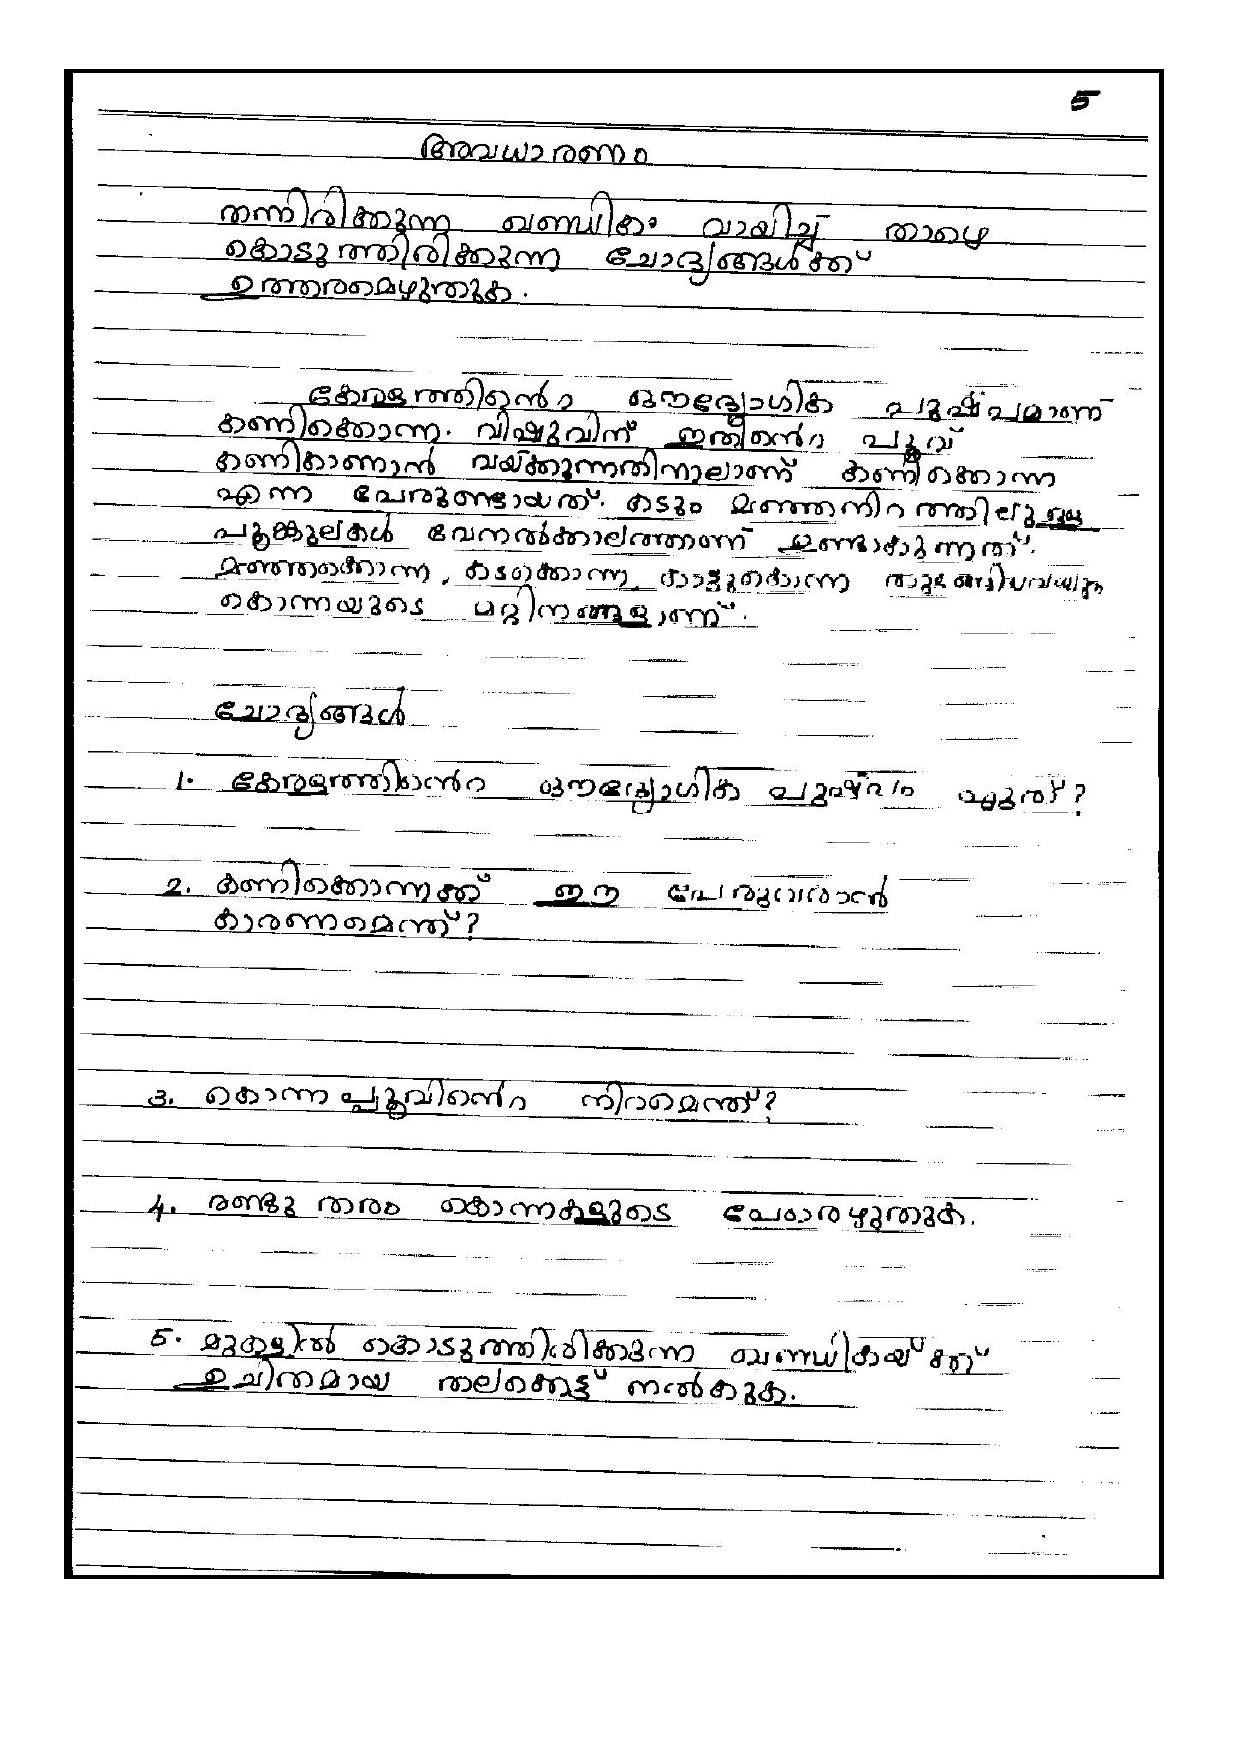 5
അവധാരണം
തന്നിരിക്കുന്ന ഖണ്ഡിക വായിച്ച് താഴെ
കൊടുത്തിരിക്കുന്ന ചോദ്യങ്ങൾക്ക്
ഉത്തരമെഴുതുക.
കേരളത്തിന്റെ ഔദ്യോഗിക പുഷ്പമാണ്
കണിക്കൊന്ന. വിഷുവിന് ഇതിന്റെ പൂവ്
കണികാണാൻ വയ്ക്കുന്നതിനാലാണ് കണിക്കൊന്ന
എന്ന പേരുണ്ടായത്. കടും മഞ്ഞനിറത്തിലുള്ള
പൂങ്കുലകൾ വേനൽക്കാലത്താണ് ഉണ്ടാകുന്നത്.
മഞ്ഞക്കൊന്ന, കടക്കൊന്ന, കാട്ടുകൊന്ന തുടങ്ങിയവയും
കൊന്നയുടെ മറ്റിനങ്ങളാണ്.
ചോദ്യങ്ങൾ
1. കേരളത്തിന്റെ ഔദ്യോഗിക പുഷ്പം ഏത്?
2. കണിക്കൊന്നക്ക് ഈ പേരുവരാൻ
കാരണമെന്ത്?
3. കൊന്നപ്പൂവിന്റെ നിറമെന്ത്?
4. രണ്ടു തരം കൊന്നകളുടെ പേരെഴുതുക.
5. മുകളിൽ കൊടുത്തിരിക്കുന്ന ഖണ്ഡികയ്ക്ക്
ഉചിതമായ തലക്കെട്ട് നൽകുക.